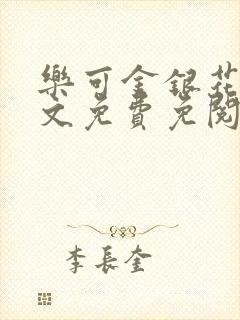 樂可金銀花
文免費免閱
李長奎